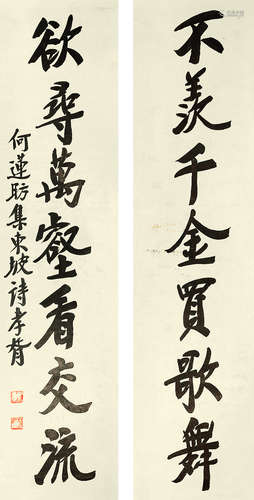 不羨千金買歌舞
欲尋萬壑看交流
何蓮昉集東坡詩孝胥